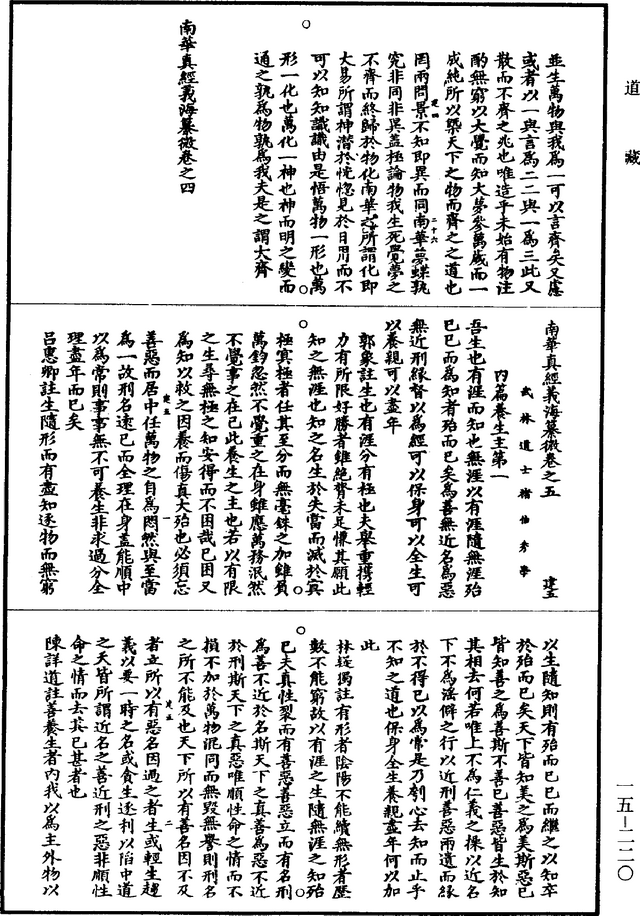 道藏
並生萬物與我為一可以言齊矣又慮
或者以一與言為二二與一為三此又
散而不齊之兆也唯造乎未始有物注
酌無窮以大覺而知大夢參萬歲而一
成純所以槩天下之物而齊之之道也
罔兩問景不知即異而同南華夢蝶孰
究非同非異蓋極論物我生死覺夢之
不齊而終歸於物化南華之所謂化即
大易所謂神潛於恍惚見於日用而不
可以知知識識由是悟萬物一形也萬
形一化也萬化一神也神而明之變而
通之孰為物孰為我夫是之謂大齊
南華真經義海纂微卷之四
二十六
南華真經義海纂微卷之五
建五
武林道士褚伯秀學
內篇養生主第一
吾生也有涯而知也無涯以有涯隨無涯殆
已已而為知者殆而已矣為善無近名為惡
無近刑緣督以為經可以保身可以全生可
以養親可以盡年
郭象註生也有涯分有極也夫舉重攜輕
力有所限好勝者雖絕膂未足慊其願此
知之無涯也知之名生於失當而滅於冥
極冥極者任其至分而無毫銖之加雖負
萬鈞忽然不覺重之在身雖應萬務泯然
不覺事之在己此養生之主也若以有限
之生尋無極之知安得而不困哉已困又
為知以救之因養而傷真大殆也必須忘
善惡而居中任萬物之自為悶然與至當
為一故刑名遠已而全理在身蓋能順中
以為常則事事無不可養生非求過分全
理盡年而已矣
呂惠卿註生隨形而有盡知逐物而無窮
一
以生隨知則有殆而已已而繼之以知卒
於殆而已矣天下皆知美之為美斯惡已
皆知善之為善斯不善已善惡皆生於知
其相去何若唯上不為仁義之操以近名
下不為淫僻之行以近刑善惡兩遺而緣
於不得已以為常是乃刳心去知而止乎
不知之道也保身全生養親盡年何以加
此
林疑獨註有形者陰陽不能續無形者歷
數不能窮故以有涯之生隨無涯之知殆
已夫真性裂而有善惡善惡立而有名刑
為善不近於名斯天下之真善為惡不近
於刑斯天下之真惡唯順性命之情而不
損不加於萬物泥同而無毀無譽則刑名
之所不能及也天下所以有善名因不及
者立所以有惡名因過之者生或輕生趨
義以要一時之名或貪生逐利以陷中道
之夭皆所謂近名之善近刑之惡非順性
命之情而去其已甚者也
陳詳道註善養生者內我以為主外物以
二
一五-二二〇